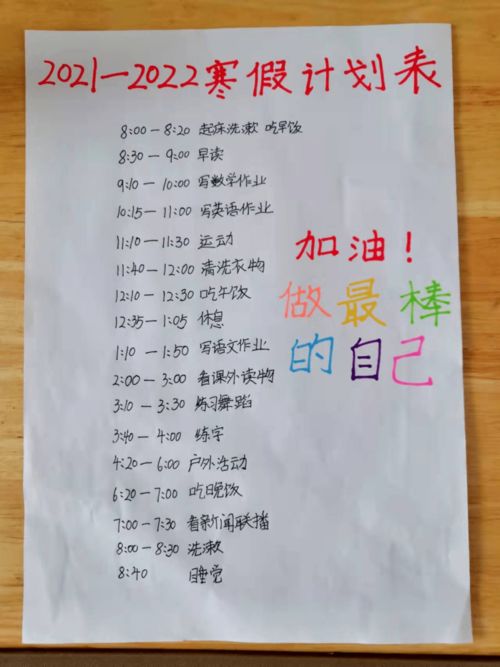 2021-2022寒假计划表
8:00-8:20 起床洗漱 吃早饭
8:30-9:00 早读
9:10-10:00 写数学作业
10:15-11:00 写英语作业
11:10-11:30 运动
11:40-12:00 清洗衣物
12:10-12:30 吃午饭
12:35-1:05 休息
1:10-1:50 写语文作业
2:00-3:00 看课外读物
3:10-3:30 练习舞蹈
3:40-4:00 练字
4:20-6:00 户外活动
6:20-7:00 吃晚饭
7:00-7:30 看新闻联播
8:00-8:30 洗漱
8:40 睡觉
加油！
做最棒
的自己